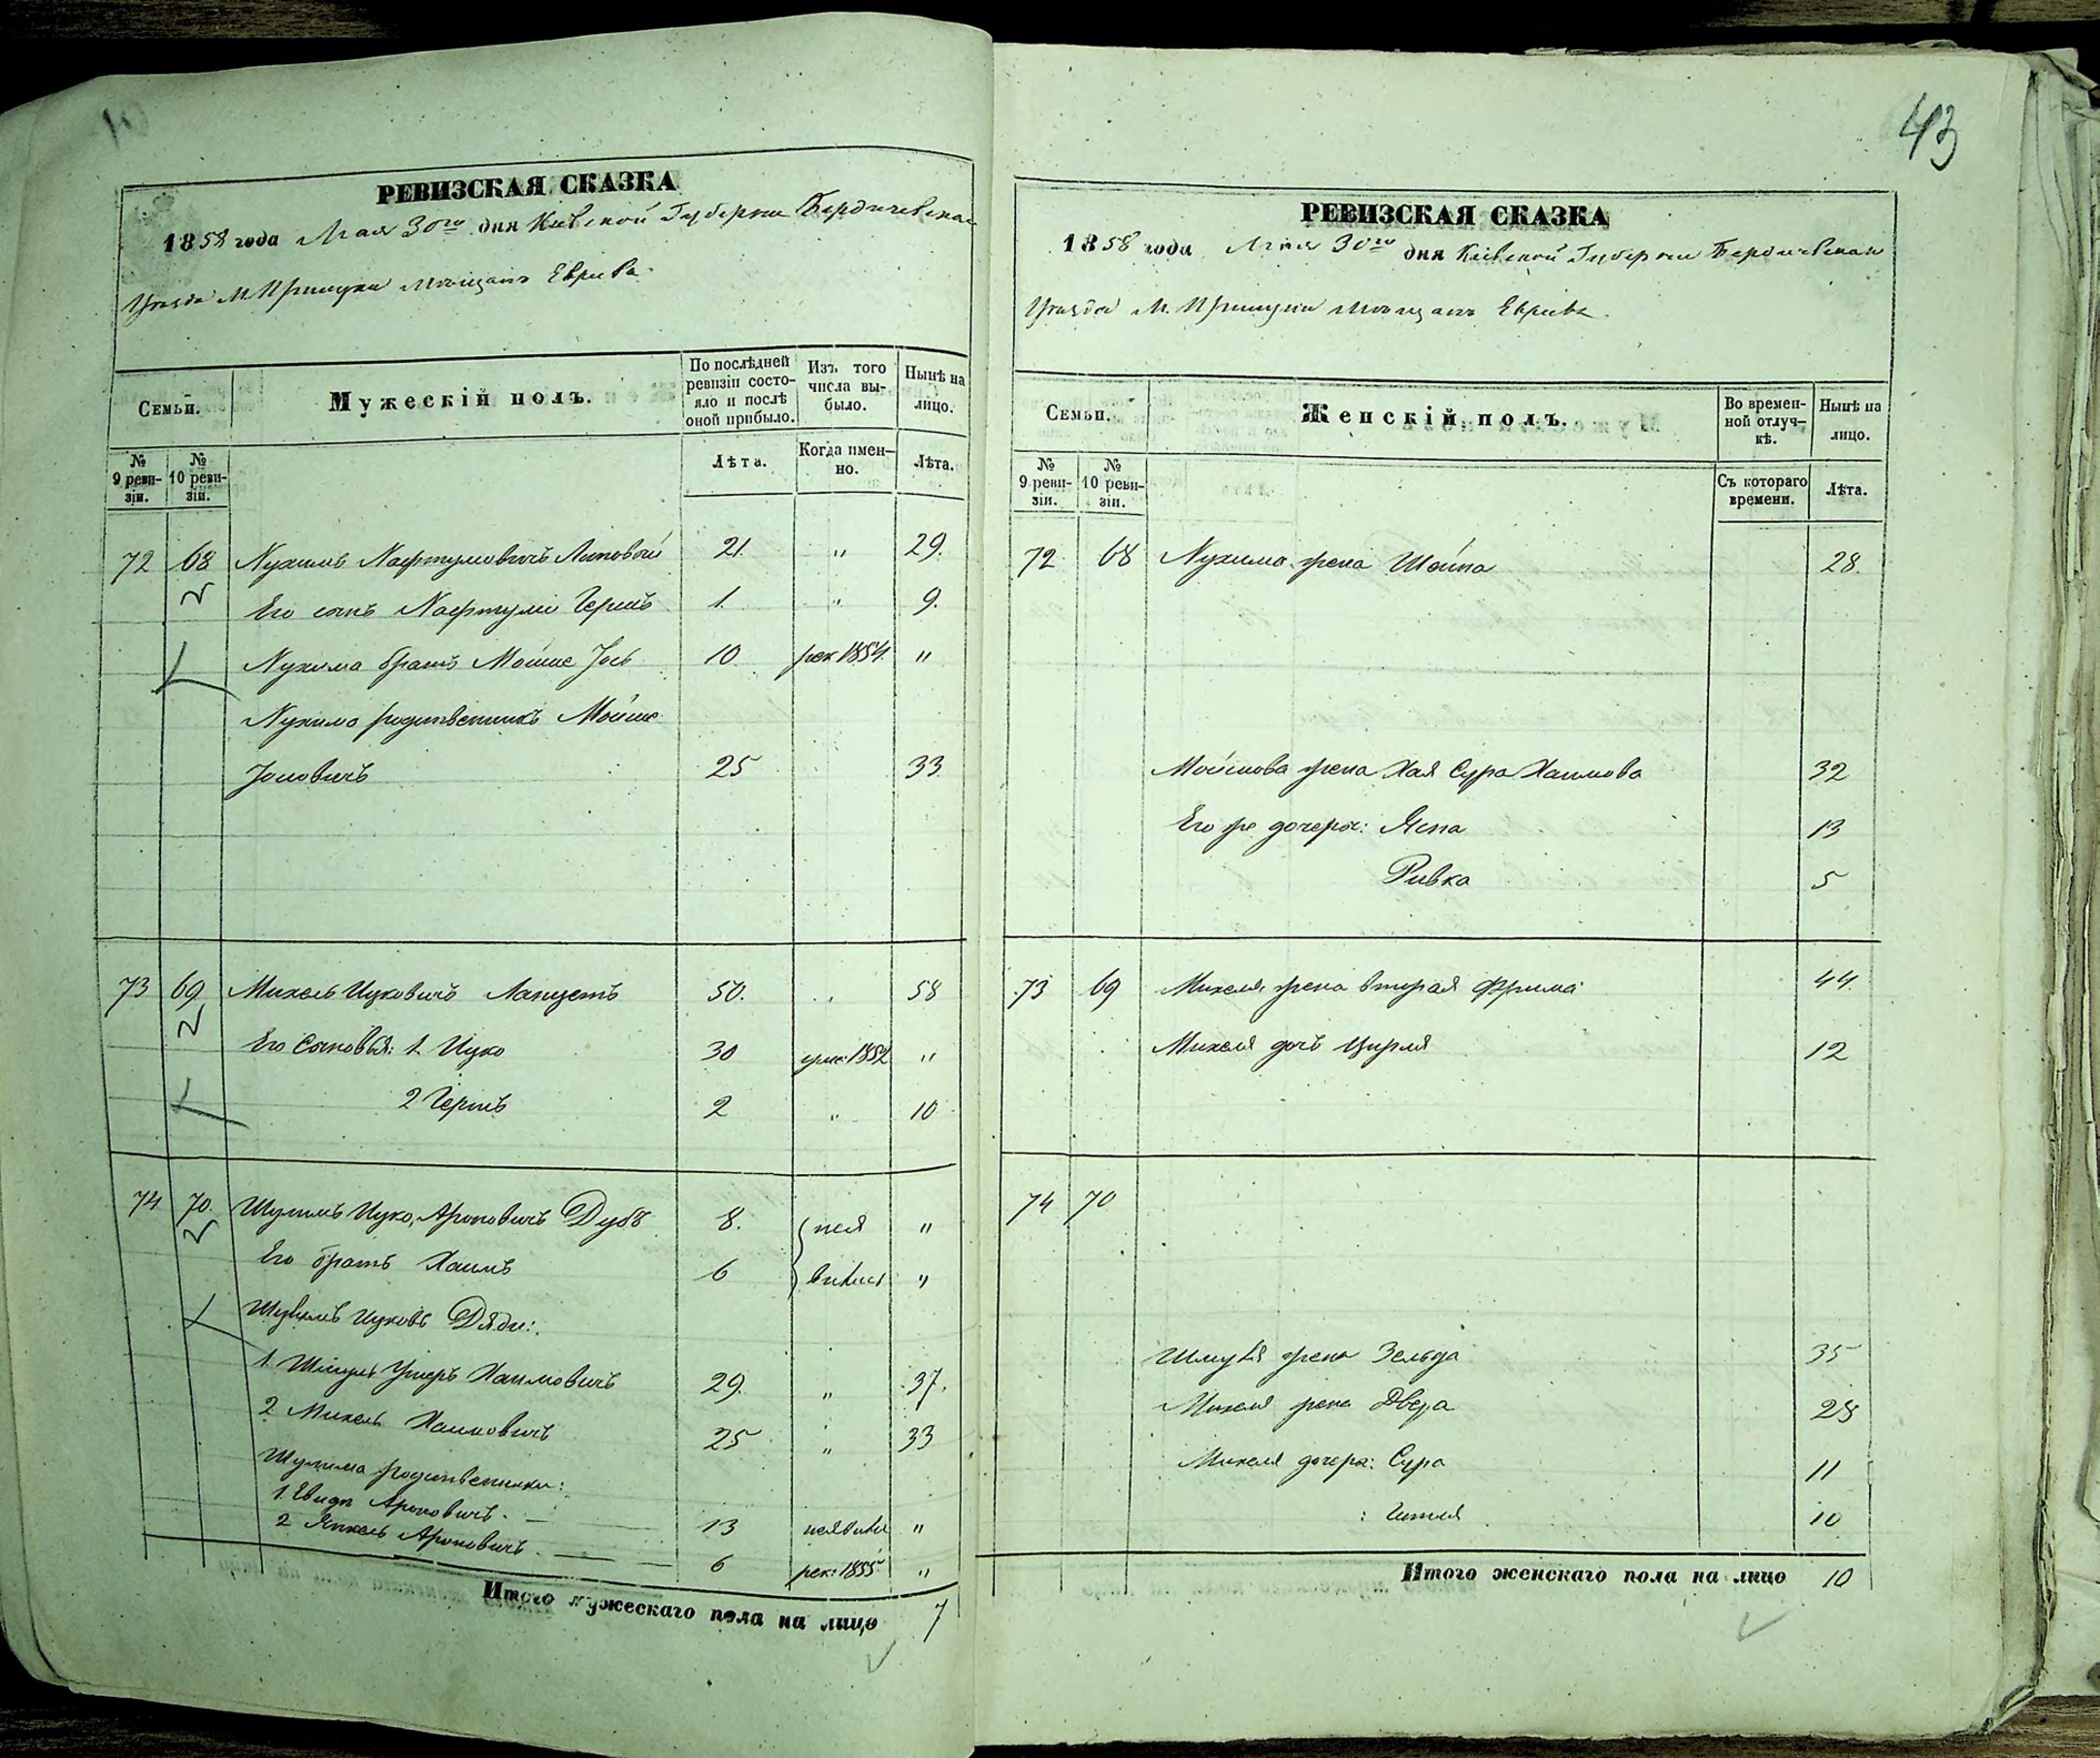 43
РЕВИЗСКАЯ СКАЗКА
1858 года Мая 30го дня Киевской Губернии Бердичевскаго
Уезда М. Прилуки мещанъ Евреевъ.
Семьи.
Мужескій полъ.
По послѣдней ревизіи состояло и послѣ оной прибыло.
Изъ того числа выбыло.
Нынѣ на лицо.
№ 9 ревизіи.
№ 10 ревизіи.
Лѣта.
Когда именно.
Лѣта.
72 68 Нухимъ Нафтуловичъ Липовой 21. " 29.
Его сынъ Нафтули Гершъ 1. " 9.
Нухима братъ Мойше Іось 10 рек 1854. "
Нухима родственникъ Мойше
Іосіовичъ 25 33.
73 69 Михель Ицковичъ Лапцетъ 50. " 58
Его Сыновья: 1 Ицко 30 уме: 1852 "
2 Гершъ 2 " 10
74 70. Шулимъ Ицко Ароновичъ Дубъ 8. нея "
Его братъ Хаимъ 6 вился "
Дяди:
1 Хаимовичъ 29. " 37.
2 Михель Хаимовичъ 25 " 33
Шулима родственники:
1. Ароновичъ. 13 "
2 Янкель Ароновичъ. 6 рек: 1855 "
Итого мужескаго пола на лицо 7
РЕВИЗСКАЯ СКАЗКА
1858 года Мая 30го дня Киевской Губернии Бердичевскаго
Уезда М. Прилуки мещанъ Евреевъ.
Семьи.
Женскій полъ.
Во временной отлучкѣ.
Нынѣ на лицо.
№ 9 ревизіи.
№ 10 ревизіи.
Съ котораго времени.
Лѣта.
72 68 Нухима жена Шейна 28.
Мойшова жена Хая Сура Хаимова 32
Его же дочери: Ясна 13
Ривка 5
73 69 Михеля жена вторая Фрима 44
Михеля дочь Цирля 12
74 70
Шмуля жена Зельда 35
Михеля жена Двера 28
Михеля дочери: Сура 11
: Гитля 10
Итого женскаго пола на лицо 10